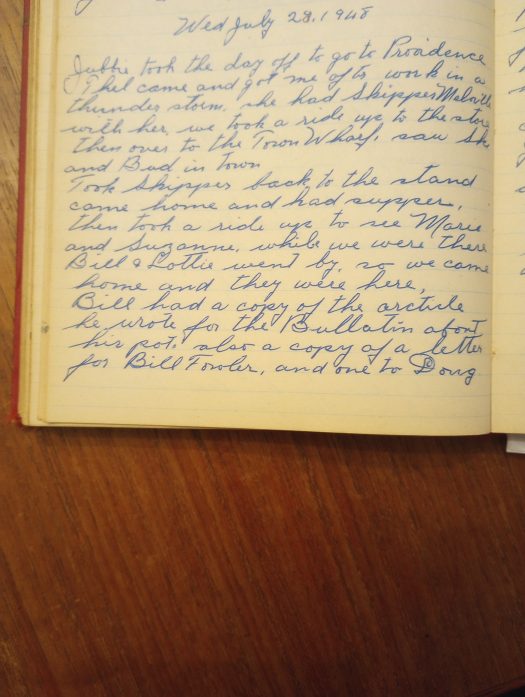 Wed July 28, 1948
took the day off to go to Providence
Thel came and got me after work in a
thunder storm. she had Skipper Melville
with her, we took a ride up to the store
then over to the Town Wharf, saw Sk
and Bud in town
Took Skipper back to the stand
came home and had supper,
then took a ride up to see Marie
and Suzanne, while we were there
Bill & Lottie went by, so we came
home and they were here,
Bill had a copy of the arcticle
he wrote for the Bullatin about
his pot. also a copy of a letter
for Bill Fowler, and one to Doug